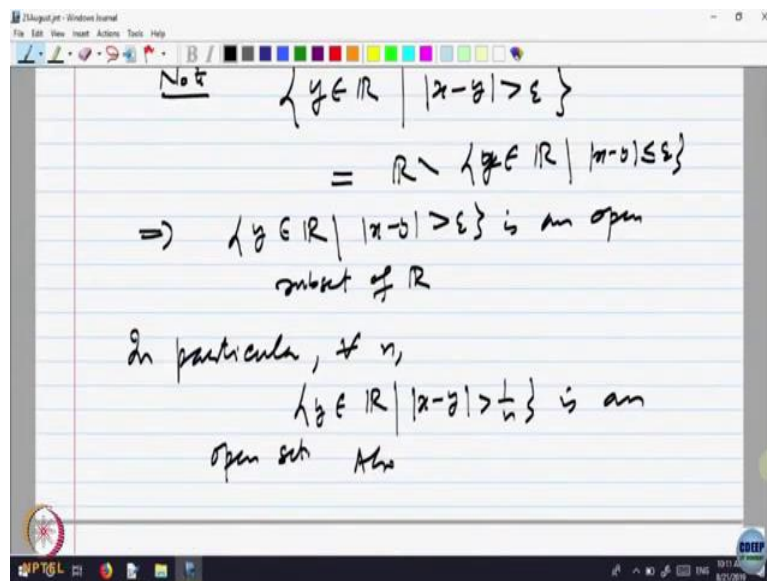 23August.jnt - Windows Journal
File Edit View Insert Actions Tools Help
Note {y ∈ ℝ | |x-y| > ε}
= ℝ \ {y ∈ ℝ | |x-y| ≤ ε}
⇒) {y ∈ ℝ | |x-y| > ε} is an open
subset of ℝ
In particular, ∀ n,
{y ∈ ℝ | |x-y| > 1/n} is an
open set Also
NPTEL
CDEEP
ENG
8/23/2019